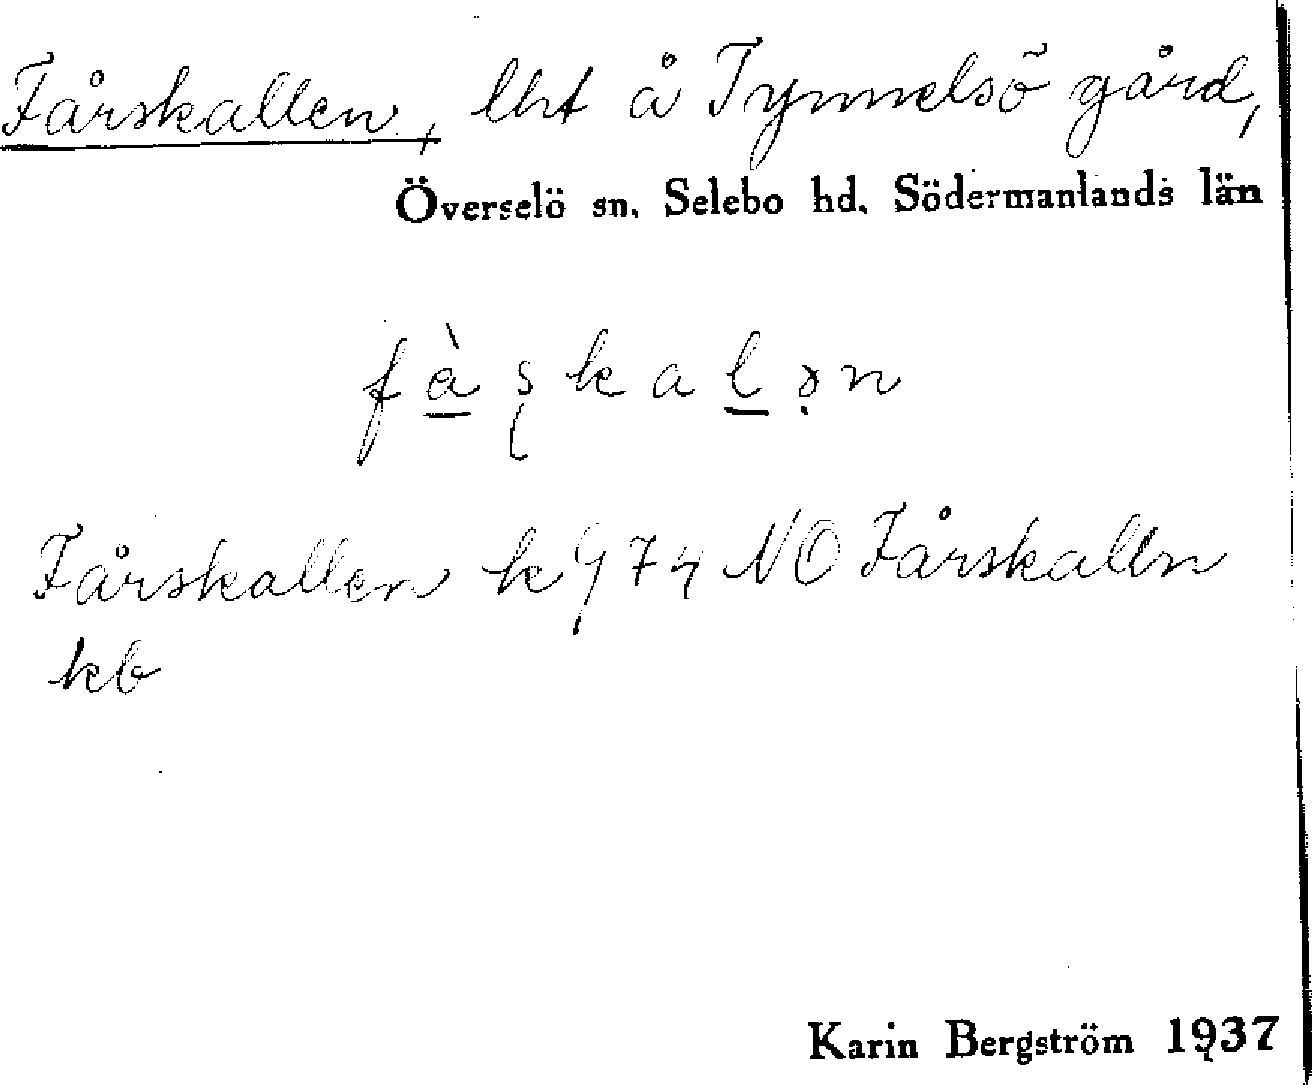 Fårskallen, lht å Tynnelsö gård,
Överselö sn. Selebo hd. Södermanlands län
fàșkalən
Fårskallen k 974 NO Fårskallen
kb
Karin Bergström 1937